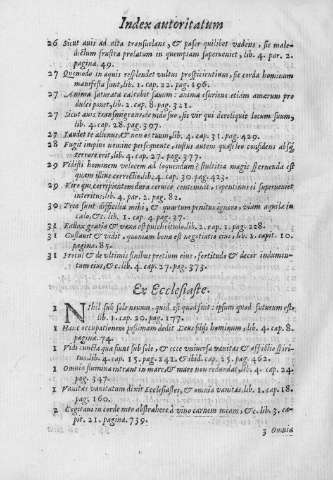 Index autoritatum
26 Sicut auis ad alta transuolans, & passer quilibet vadens, sic male-
dictum frustra prolatum in quempiam superueniet, lib. 4. par. 2.
pagina. 49.
27 Quomodo in aquis resplendet vultus prospicientium, sic corda hominum
manifesta sunt, lib. 1. cap. 22. pag. 196.
27 Anima saturata calcabit fauum: anima esuriens etiam amarum pro
dulci panet, lib. 2. cap. 8. pag. 321.
27 Sicut auis transmigrans de nido suo, sic vir qui dereliquit locum suum,
lib. 4. cap. 28. pag. 397.
27 Laudet te alienus & non os tuum, lib. 4. cap. 31. pag. 429.
28 Fugit impius nemine persequente, iustus autem quasi leo confidens absq;
terrore erit, lib. 4. cap. 27. pag. 377.
29 Vidisti hominem velocem ad loquendum? stultitia magis speranda est
quam illius correctio, lib. 4. cap. 30. pag. 423.
29 Viro qui corripientem dura ceruice contemnit, repentinus ei superueniet
interitus, lib. 4. par. 2. pag. 82.
30 Tria sunt difficilia mihi, & quartum penitus ignoro, viam aquilæ in
cælo, &c. lib. 1. cap. 4. pag. 27.
31 Fallax gratia & vana est pulchritudo, lib. 2. cap. 1. pag. 228.
31 Gustauit & vidit, quoniam bona est negotiatio eius, lib. 1. capit. 10.
pagina. 85.
31 Procul & de vltimis finibus pretium eius, fortitudo & decor indumen-
tum eius, &c. lib. 4. cap. 27. pag. 373.
Ex Ecclesiaste.
1 Nihil sub sole nouum, quid est quod fuit: ipsum quod futurum est,
lib. 1. cap. 20. pag. 177.
1 Hanc occupationem pessimam dedit Deus filijs hominum, lib. 4. cap. 8.
pagina. 74.
1 Vidi cuncta quæ fiunt sub sole, & ecce vniuersa vanitas & afflictio spiri-
tus, lib. 4. cap. 15. pag. 242. & ibid. cap. 25. pag. 462.
1 Omnia flumina intrant in mare, & mare non redundat, lib. 4. cap. 24.
pag. 347.
1 Vanitas vanitatum dixit Ecclesiastes, & omnia vanitas, lib. 1. cap. 18.
pag. 160.
2 Cogitaui in corde meo abstrahere à vino carnem meam, &c. lib. 3. ca-
pit. 21. pagina. 739.
3 Omnia